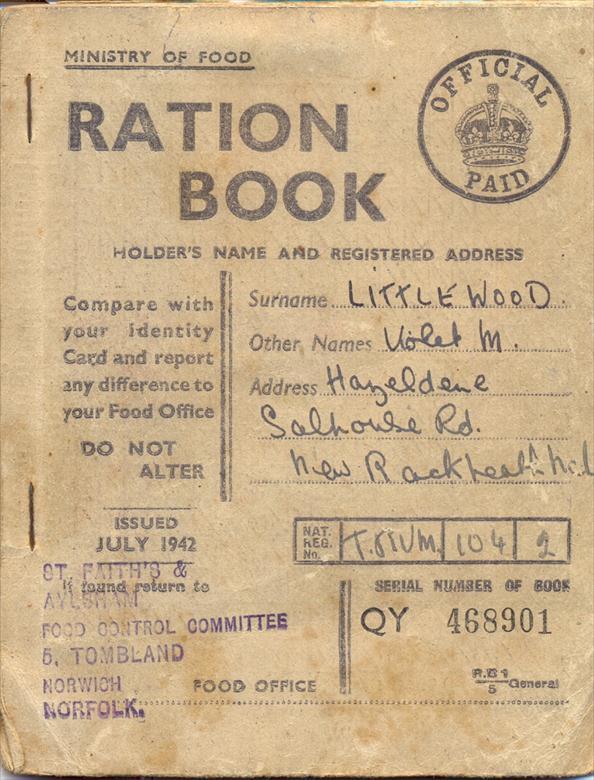 MINISTRY OF FOOD
OFFICIAL
PAID
RATION
BOOK
HOLDER'S NAME AND REGISTERED ADDRESS
Compare with
your Identity
Card and report
any difference to
your Food Office
DO NOT
ALTER
Surname LITTLEWOOD.
Other Names Violet M.
Address Hazeldene
Salhouse Rd.
New Rackheath
ISSUED
JULY 1942
NAT.
REG.
No.
104 2
ST. FAITH'S &
If found return to
AYLSHAM
FOOD CONTROL COMMITTEE
5, TOMBLAND
NORWICH
NORFOLK.
FOOD OFFICE
SERIAL NUMBER OF BOOK
QY 468901
R.B.1
5 General